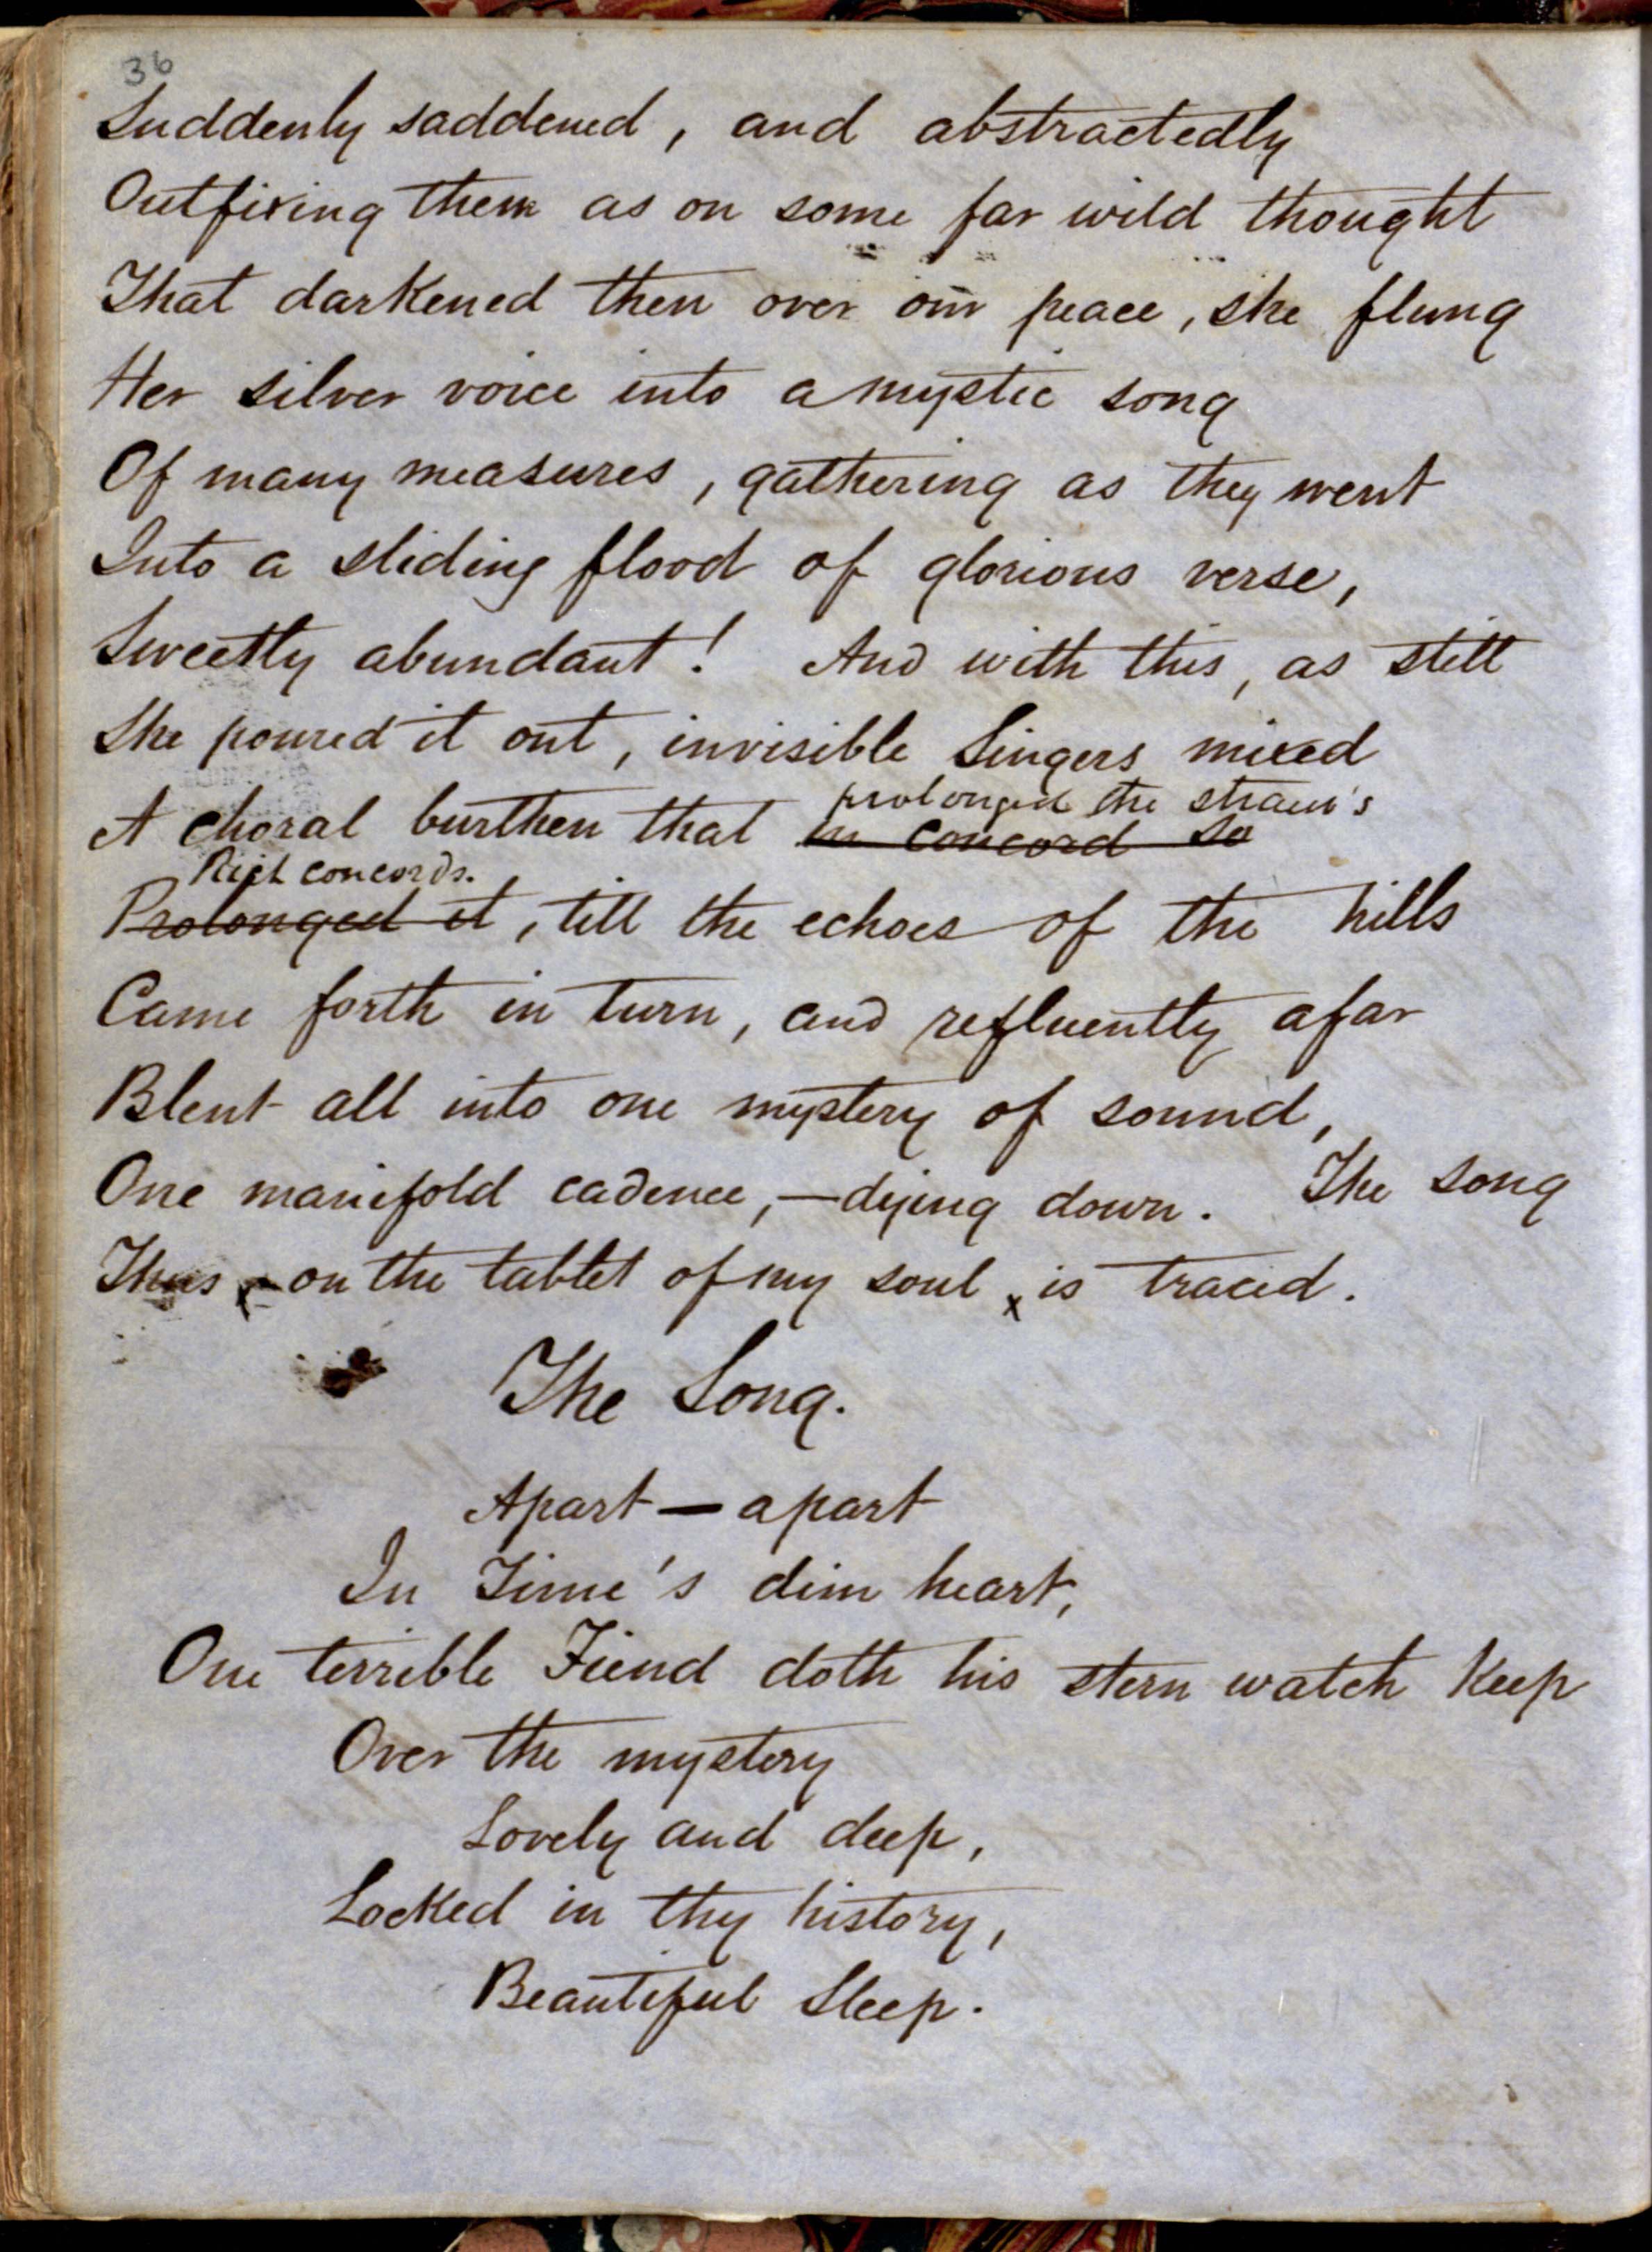 36
Suddenly saddened, and abstractedly
Outfixing them as on some far wild thought
That darkened then over our peace, she flung
Her silver voice into a mystic song
Of many measures, gathering as they went
Into a sliding flood of glorious verse,
Sweetly abundant! And with this, as still
She poured it out, invisible Singers mixed
prolonged the strain's
A choral burthen that in concord so
Rich concords.
Prolonged it, till the echoes of the hills
Came forth in turn, and refluently afar
Blent all into one mystery of sound,
One manifold cadence,—dying down. The song
Thus — on the tablet of my soul x is traced.
The Song.
Apart — apart
In Time's dim heart,
One terrible Fiend doth his stern watch keep
Over the mystery
Lovely and deep,
Locked in thy history,
Beautiful Sleep.